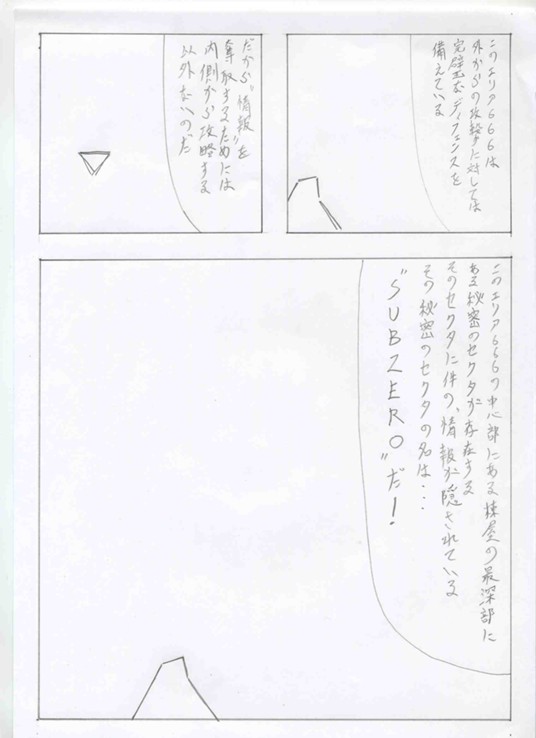 このエリア666は
外からの攻撃に対しては
完璧なディフェンスを
備えている
だから"情報"を
奪取するためには
内側から攻略する
以外ないのだ
このエリア666の中心部にある棟屋の最深部に
ある秘密のセクタが存在する
そのセクタに件の、情報が隠されている
その秘密のセクタの名は・・・
"SUBZERO"だ!